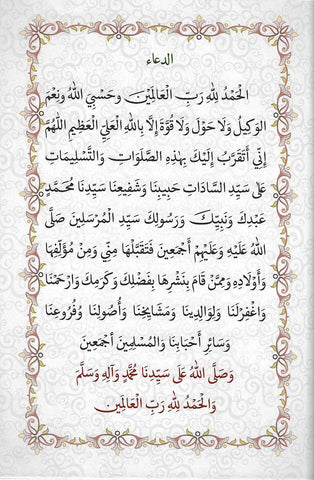 الدعاء
الْحَمْدُ لِلَّهِ رَبِّ الْعَالَمِيْنَ وحَسْبِيَ اللهُ ونِعْمَ
الوَكِيلُ وَلَا حَوْلَ وَلَا قُوَّةَ إِلَّا بِاللهِ العَلِيِّ العَظِيمِ اللهُمَّ
إِنِّي أَتَقَرَّبُ إِلَيْكَ بِهَذِهِ الصَّلَوَاتِ وَالتَّسْلِيمَاتِ
عَلَى سَيِّدِ السَّادَاتِ حَبِيبِنَا وَشَفِيعِنَا سَيِّدِنَا مُحَمَّدٍ
عَبْدِكَ وَنَبِيِّكَ وَرَسُولِكَ سَيِّدِ الْمُرْسَلِينَ صَلَّى
اللهُ عَلَيْهِ وَعَلَيْهِمْ أَجْمَعِينَ فَتَقَبَّلْهَا مِنِّي وَمِنْ مُؤَلِّفِهَا
وَأَوْلَادِهِ وَمِمَّنْ قَامَ بِنَشْرِهَا بِفَضْلِكَ وَكَرَمِكَ وَارْحَمْنَا
وَاغْفِرْلَنَا وَلِوَالِدِينَا وَمَشَايِخِنَا وَأُصُولِنَا وَفُرُوعِنَا
وَسَائِرِ أَحْبَابِنَا وَالْمُسْلِمِينَ أَجْمَعِينَ
وَصَلَّى اللهُ عَلَى سَيِّدِنَا مُحَمَّدٍ وَآلِهِ وَسَلَّمَ
وَالْحَمْدُ لِلَّهِ رَبِّ الْعَالَمِين